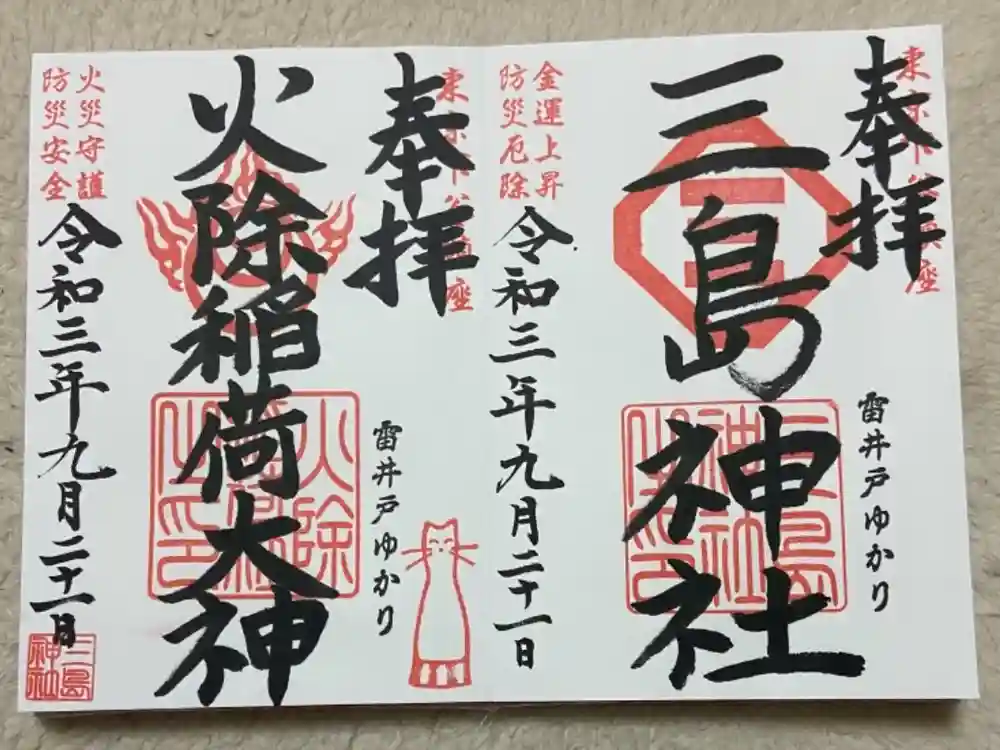 奉拝
三島神社
雷井戸ゆかり
金運上昇
防災厄除
令和三年九月二十一日
奉拝
火除稲荷大神
雷井戸ゆかり
火災守護
防災安全
令和三年九月二十一日
三島
神社